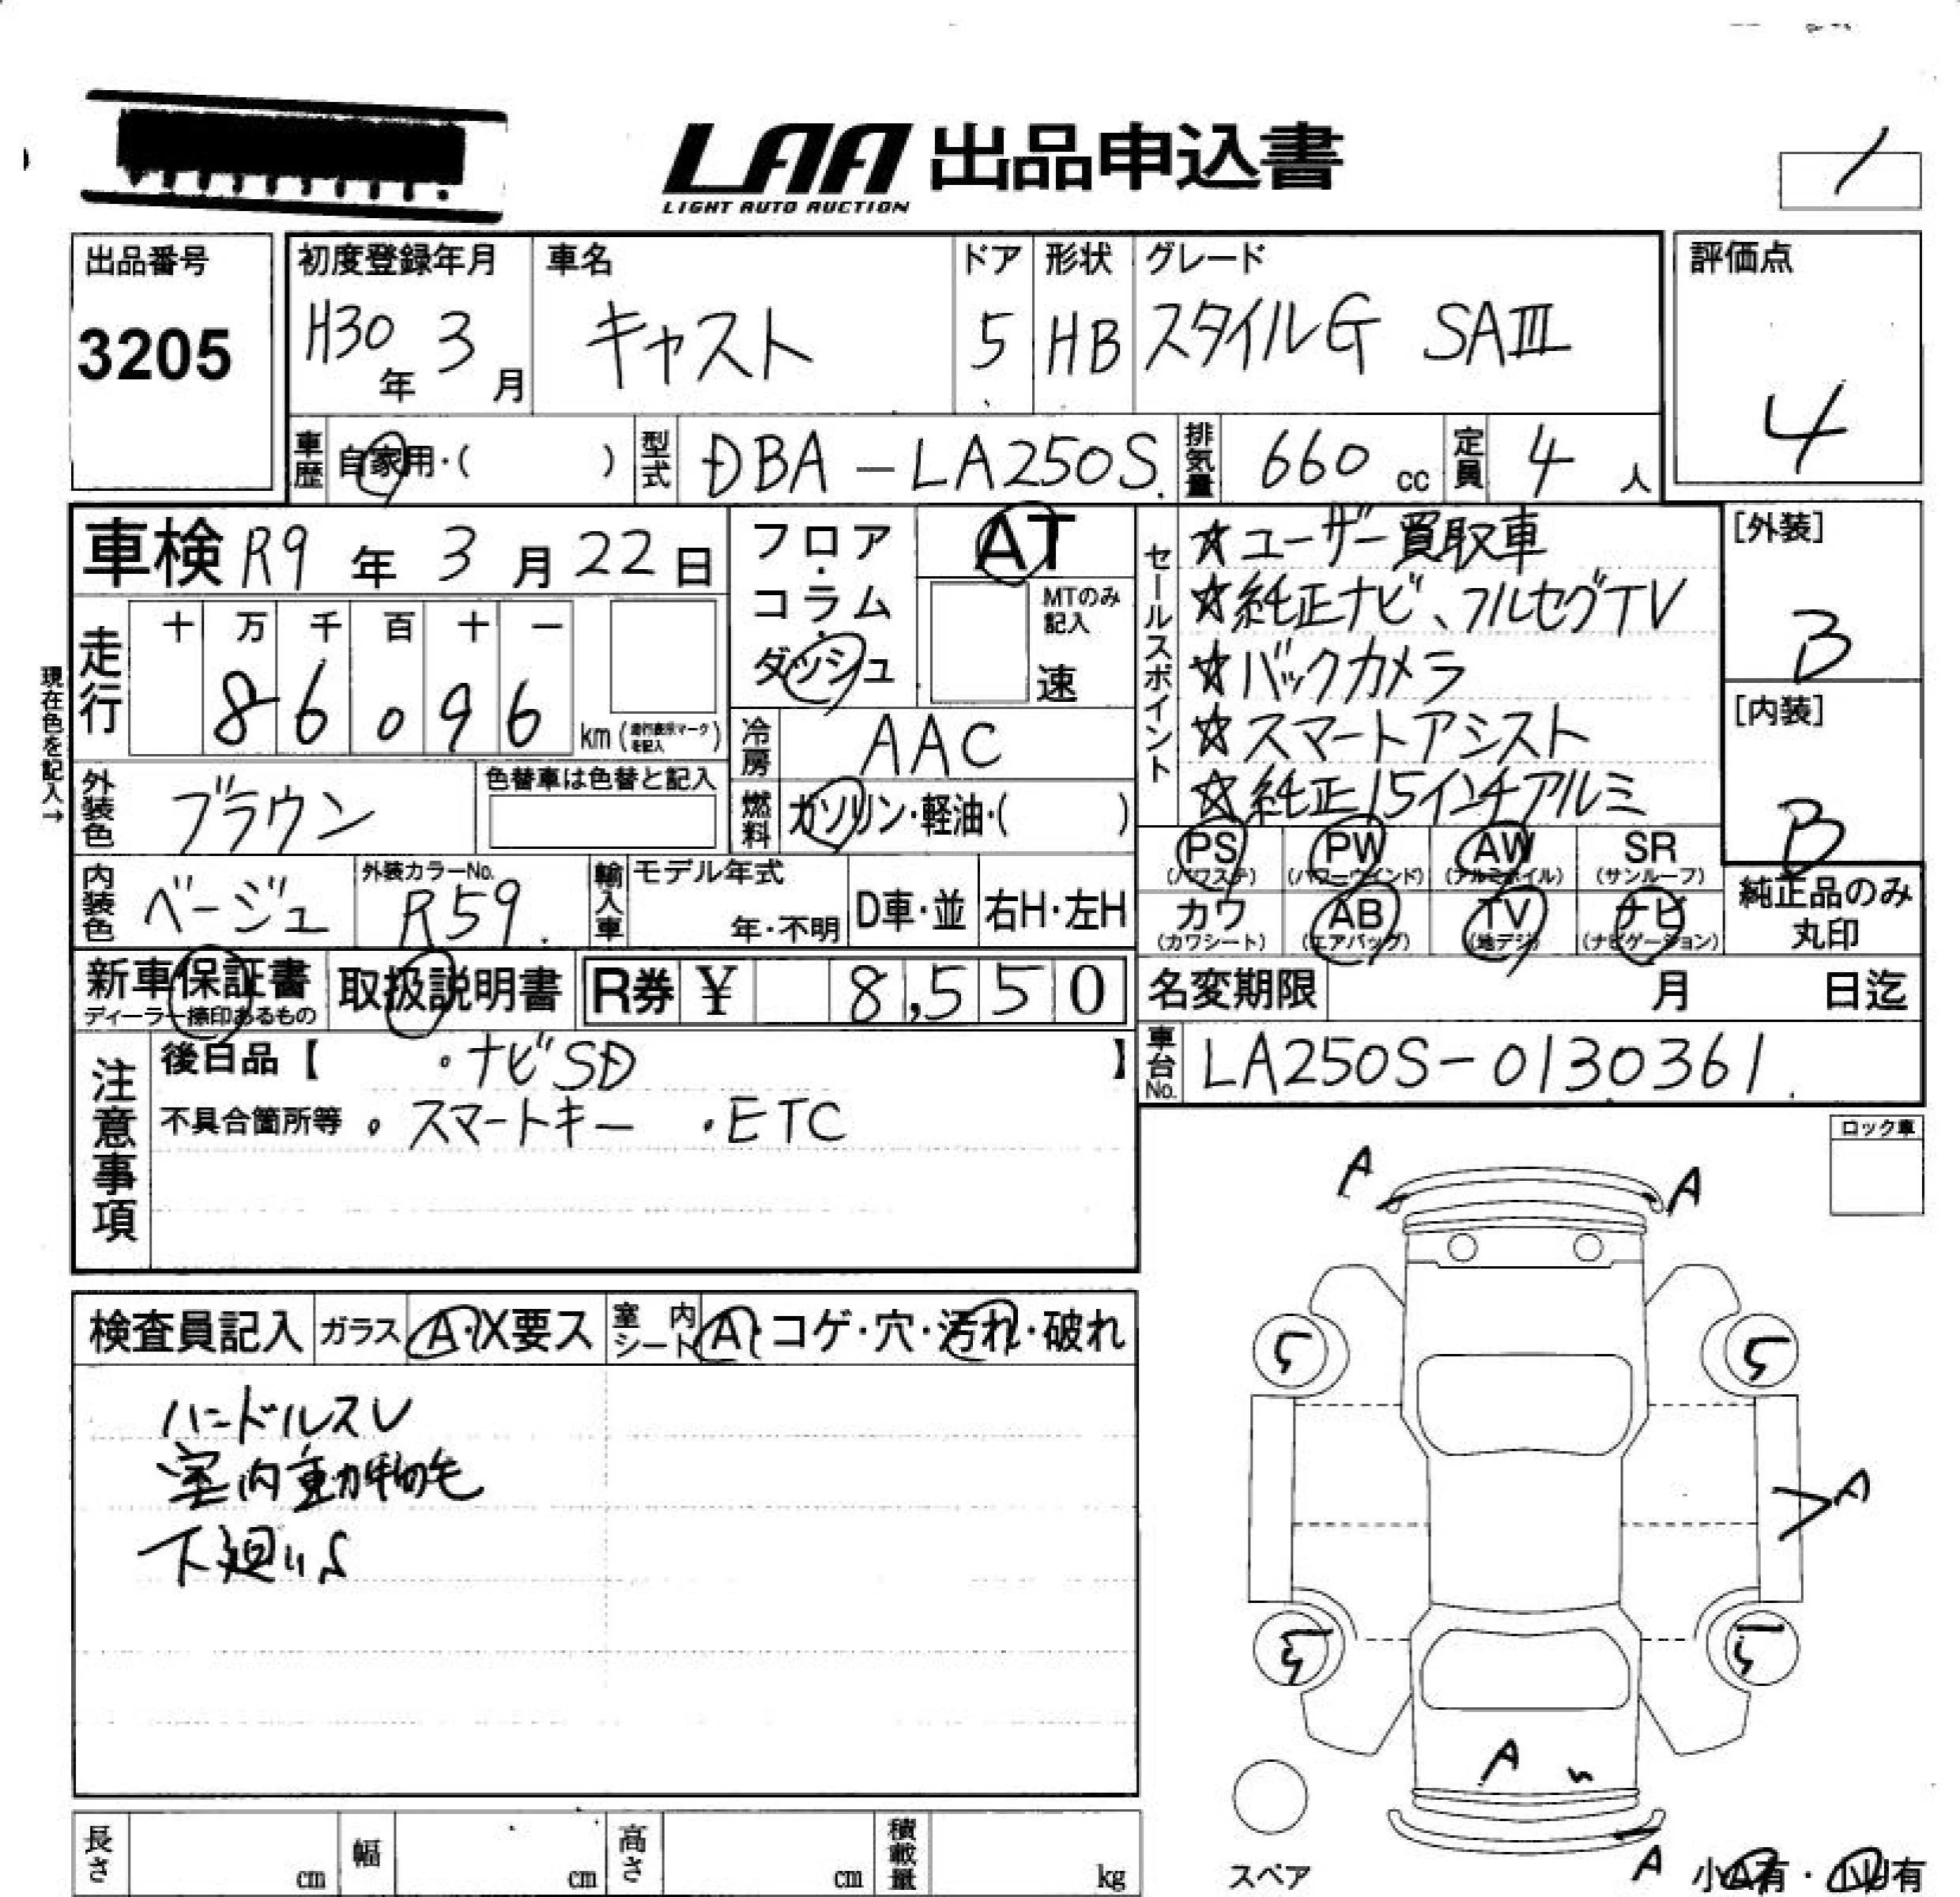 LAA 出品申込書
LIGHT AUTO AUCTION
出品番号
3205
初度登録年月
H30年 3月
車名
キャスト
ドア
5
形状
HB
グレード
スタイルG SAⅢ
評価点
4
車歴
自家用・( )
型式
DBA-LA250S
排気量
660 cc
定員
4人
車検 R9年 3月 22日
現在色を記入→
走行
十 万 千 百 十 一
8 6 0 9 6 km(走行表示マークを記入)
フロア・コラム・ダッシュ
AT
MTのみ記入
速
冷房
AAC
燃料
ガソリン・軽油・( )
セールスポイント
☆ユーザー買取車
☆純正ナビ、フルセグTV
☆バックカメラ
☆スマートアシスト
☆純正15インチアルミ
[外装]
B
[内装]
B
外装色
ブラウン
色替車は色替と記入
内装色
ベージュ
外装カラーNo.
R59
輸入車
モデル年式
年・不明
D車・並
右H・左H
PS (パワステ)
PW (パワーウインド)
AW (アルミホイル)
SR (サンルーフ)
カワ (カワシート)
AB (エアバッグ)
TV (地デジ)
ナビ (ナビゲーション)
純正品のみ丸印
新車保証書
ディーラー捺印あるもの
取扱説明書
R券 ¥ 8,550
名変期限 月 日迄
車台No.
LA250S-0130361
注意事項
後日品【 ・ナビSD 】
不具合箇所等 。スマートキー ・ETC
ロック車
検査員記入
ガラス A・X要ス
室内シート A・コゲ・穴・汚れ・破れ
ハンドルスレ
室内動物毛
下廻りS
A A
5 5
A
5 5
A
A
スペア
小A有・小U有
長さ cm
幅 cm
高さ cm
積載量 kg